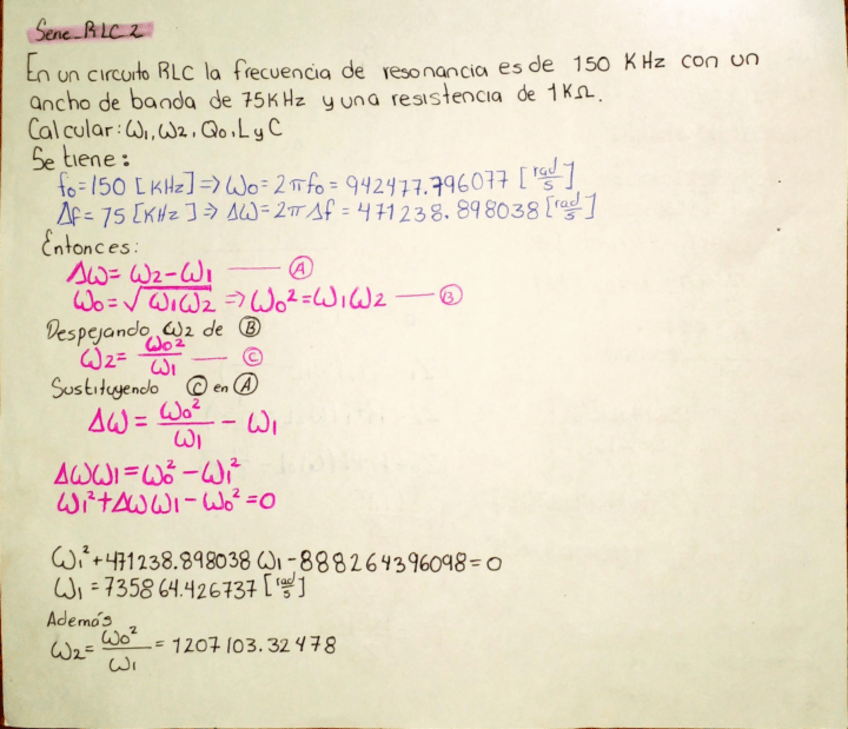 Serie RLC 2
En un circuito RLC la frecuencia de resonancia es de 150 KHz con un
ancho de banda de 75KHz y una resistencia de 1KΩ.
Calcular: ω₁, ω₂, Q₀, L y C
Se tiene:
f₀=150 [KHz] => ω₀= 2πf₀ = 942477.796077 [rad/s]
Δf= 75 [KHz] => Δω= 2πΔf = 471238.898038 [rad/s]
Entonces:
Δω= ω₂-ω₁ —— Ⓐ
ω₀=√ω₁ω₂ => ω₀²=ω₁ω₂ —— Ⓑ
Despejando ω₂ de Ⓑ
ω₂= ω₀²/ω₁ —— Ⓒ
Sustituyendo Ⓒ en Ⓐ
Δω = ω₀²/ω₁ - ω₁
Δωω₁=ω₀²-ω₁²
ω₁²+Δωω₁-ω₀²=0
ω₁²+471238.898038 ω₁-888264396098=0
ω₁=735864.426737 [rad/s]
Además
ω₂= ω₀²/ω₁ = 1207103.32478